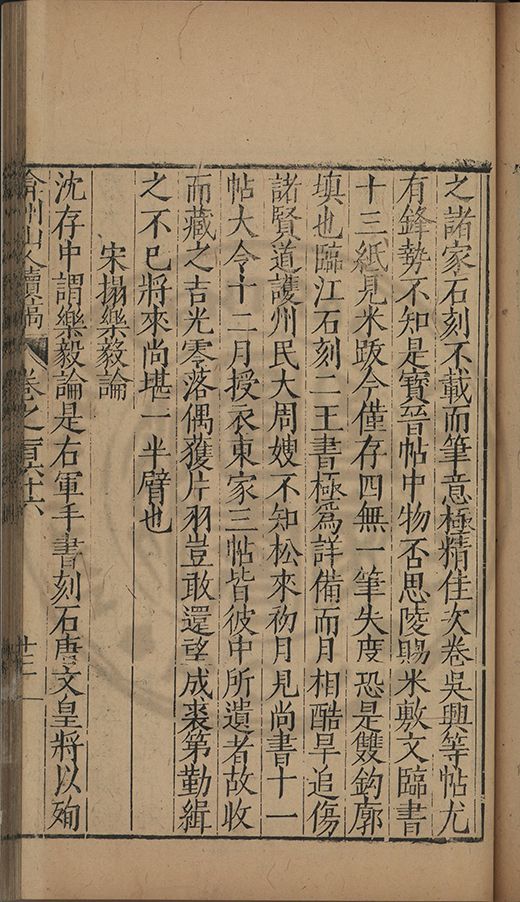 之諸家石刻不載而筆意極精佳次卷吳興等帖尤
有鋒勢不知是寶晉帖中物否思陵賜米敷文臨書
十三紙見米跋今僅存四無一筆失度恐是雙鈎廓
填也臨江石刻二王書極爲詳備而月相酷旱追傷
諸賢道護州民大周嫂不知松來初月見尚書十一
帖大令十二月授衣東家三帖皆彼中所遺者故收
而藏之吉光零落偶獲片羽豈敢還望成裘第勤緝
之不已將來尚堪一半臂也
宋搨樂毅論
沈存中謂樂毅論是右軍手書刻石唐文皇將以殉
弇州山人續稿 卷之一百六十六